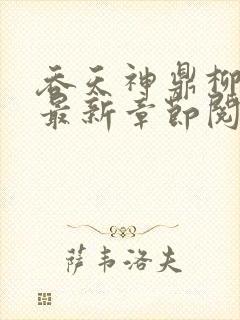 吞天神鼎柳
最新章节阅
萨韦洛夫